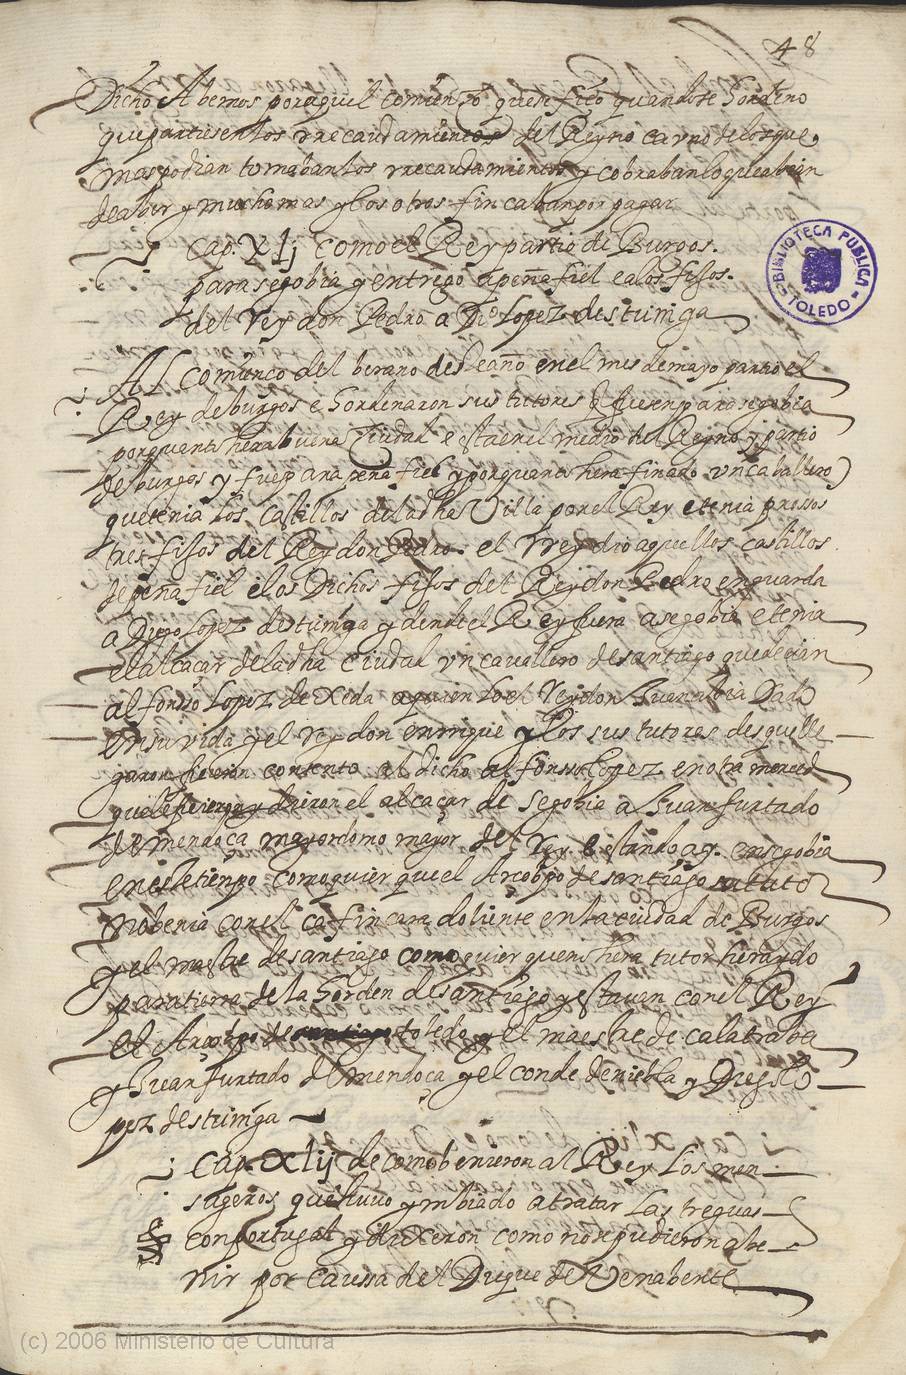 48
Dicho Abemos por aquel comienço que se fiço quando se hordeno
que partiesen los rrecaudamientos del Reyno ca vno de los que
mas podian tomaban los rrecaudamientos y cobraban lo que abian
de aber y mucho mas y los otros fincaban por pagar
Cap. XLj como el Rey partio de Burgos.
para segobia y entrego a peñafiel e a los fijos.
del rey don Pedro a Dº Lopez destuniga
Al comienco del berano deste año en el mes de mayo partio el
Rey de burgos e hordenaron sus tutores q fuesen para segobia
porquanto hera buena Ciudad e esta en el medio del Reyno y partio
de burgos y fue para peña fiel y porquanto hera finado vn caballero
que tenia los castillos de la dha Villa por el Rey e tenia presos
tres fijos del Rey don Pedro. el Rrey dio aquellos castillos
de peña fiel e los Dichos fijos del Rey don Pedro en guarda
a Diego Lopez destuniga y dende el Rey fuera a segobia e tenia
el alcaçar de la dha ciudad vn cavallero de santiago que decian
alfonsso Lopez de Xeda a quien lo el Rey don Juan abia Dado
en su vida y el rey don enrrique y los sus tutores desque lle
garon ficieron contento al dicho alfonsso Lopez en otra merced
que le ficieron y dieron el alcaçar de Segobia a Juan furtado
de mendoça mayordomo mayor del Rey E estando asi en segobia
en este tiempo como quier que el Arcobpo de santiago su tutor
no benia con el ca fincara doliente en la ciudad de Burgos
y el maestre de santiago como quier quens hera tutor hera ydo
para tierra de la horden de Santiago y estavan con el Rey
el Arcobpo de toledo y el maestre de calatraba
y Juan furtado de mendoça y el conde de niebla y Diego Lo
pez destuniga
Cap. xlij de como benieron al Rey los men
sageros que hauo ynbiado a tratar las treguas
con portugal y dixeron como no se pudieron abe
nir por caussa del Duque de Venabente
BIBLIOTECA PÚBLICA TOLEDO
(c) 2006 Ministerio de Cultura